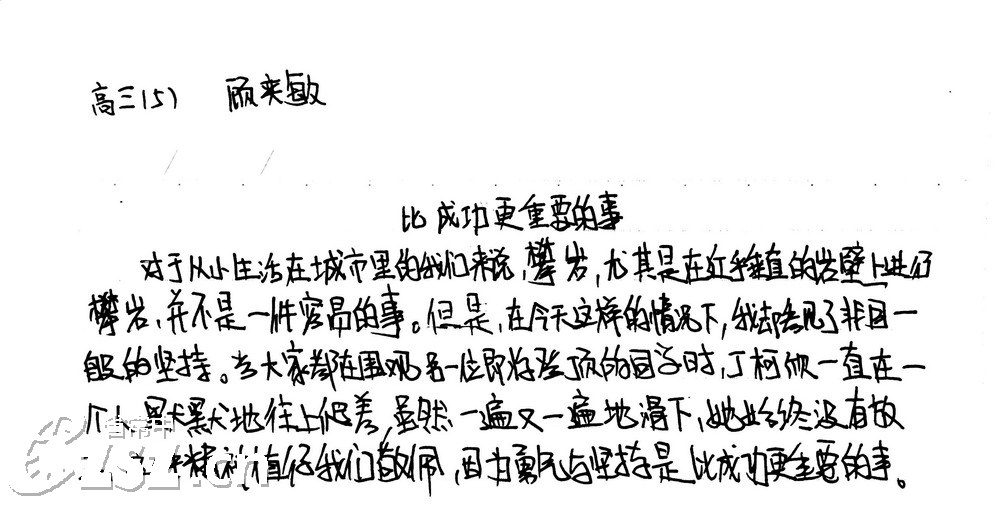 高三(5) 顾奕敏
比成功更重要的事
对于从小生活在城市里的我们来说,攀岩,尤其是在近乎垂直的岩壁上进行
攀岩,并不是一件容易的事。但是,在今天这样的情况下,我却看见了非同一
般的坚持。当大家都在围观另一位即将登顶的同学时,丁柯欣一直在一
个人默默地往上爬着,虽然一遍又一遍地滑下,她始终没有放
精神值得我们敬佩,因为勇气与坚持是比成功更重要的事。